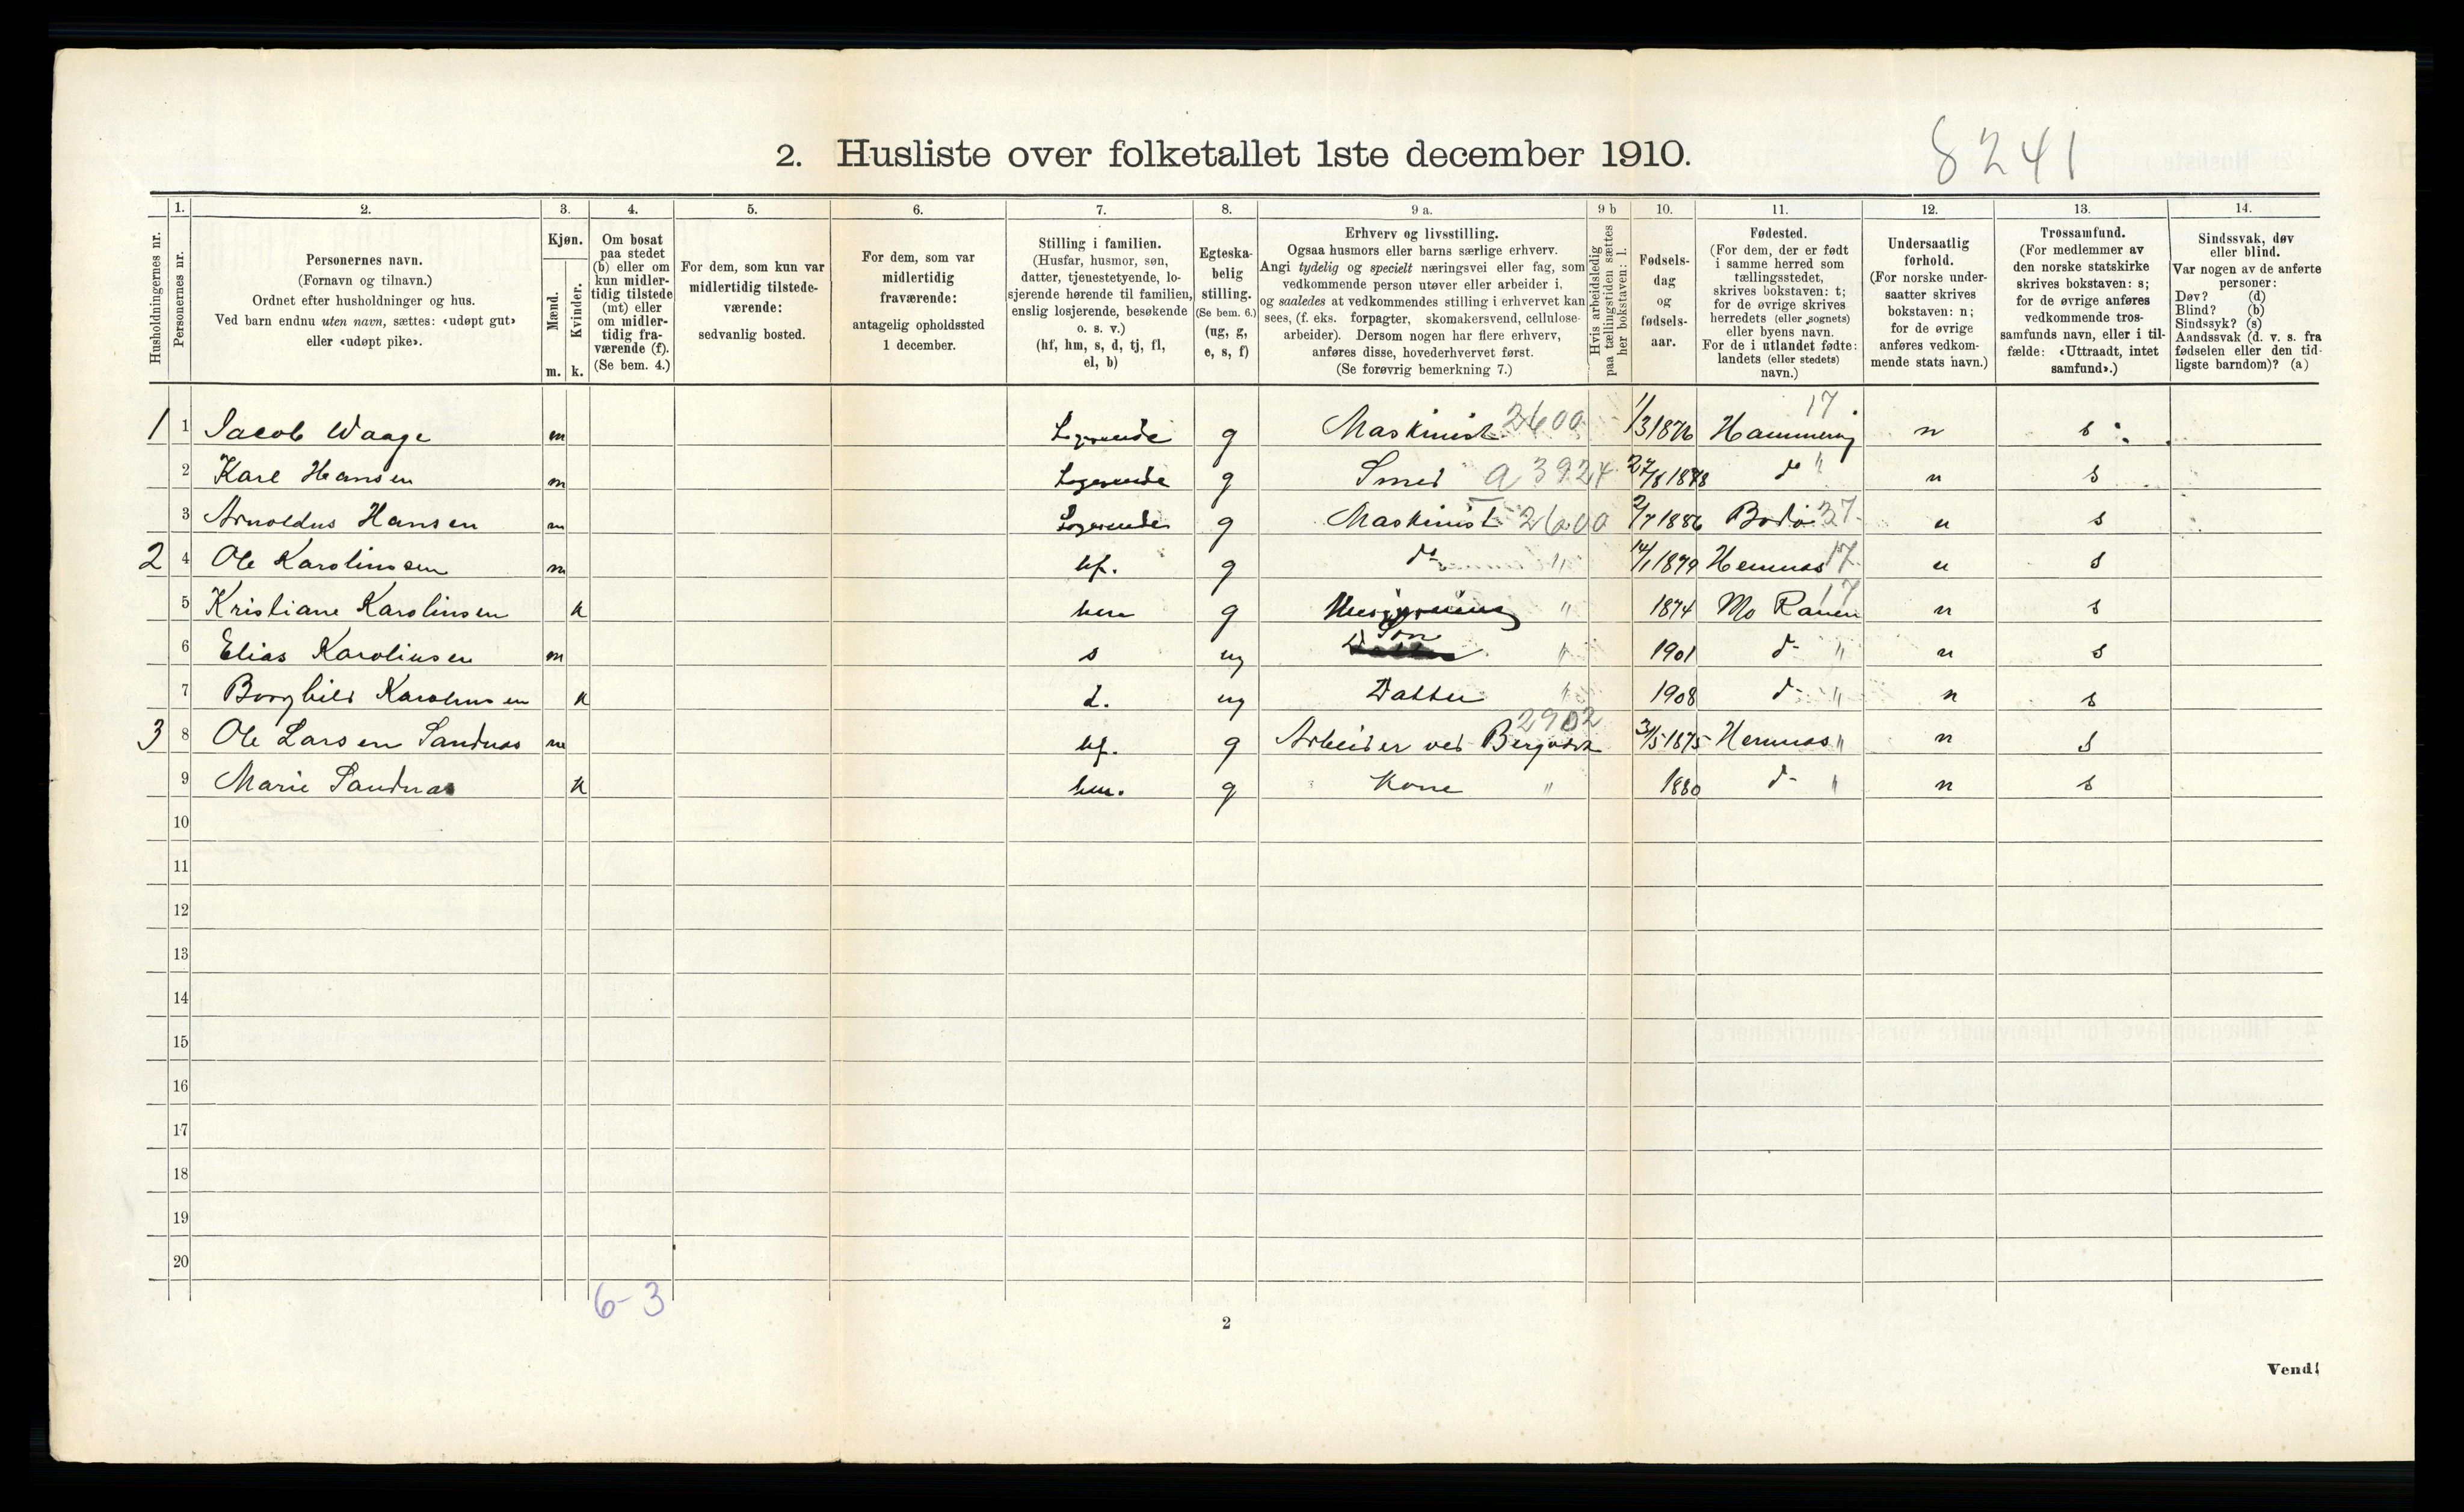 8241
2. Husliste over folketallet 1ste december 1910.
Husholdningernes nr.
1. Personernes nr.
2. Personernes navn.
(Fornavn og tilnavn.)
Ordnet efter husholdninger og hus.
Ved barn endnu uten navn, sættes: «udøpt gut»
eller «udøpt pike».
3. Kjøn.
Mænd. m.
Kvinder. k.
4. Om bosat
paa stedet
(b) eller om
kun midler-
tidig tilstede
(mt) eller
om midler-
tidig fra-
værende (f).
(Se bem. 4.)
5. For dem, som kun var
midlertidig tilstede-
værende:
sedvanlig bosted.
6. For dem, som var
midlertidig
fraværende:
antagelig opholdssted
1 december.
7. Stilling i familien.
(Husfar, husmor, søn,
datter, tjenestetyende, lo-
sjerende hørende til familien,
enslig losjerende, besøkende
o. s. v.)
(hf, hm, s, d, tj, fl,
el, b)
8. Egteska-
belig
stilling.
(Se bem. 6.)
(ug, g,
e, s, f)
9 a. Erhverv og livsstilling.
Ogsaa husmors eller barns særlige erhverv.
Angi tydelig og specielt næringsvei eller fag, som
vedkommende person utøver eller arbeider i,
og saaledes at vedkommendes stilling i erhvervet kan
sees, (f. eks. forpagter, skomakersvend, cellulose-
arbeider). Dersom nogen har flere erhverv,
anføres disse, hovederhvervet først.
(Se forøvrig bemerkning 7.)
9 b Hvis arbeidsledig
paa tællingstiden sættes
her bokstaven: l.
10. Fødsels-
dag
og
fødsels-
aar.
11. Fødested.
(For dem, der er født
i samme herred som
tællingsstedet,
skrives bokstaven: t;
for de øvrige skrives
herredets (eller sognets)
eller byens navn.
For de i utlandet fødte:
landets (eller stedets)
navn.)
12. Undersaatlig
forhold.
(For norske under-
saatter skrives
bokstaven: n;
for de øvrige
anføres vedkom-
mende stats navn.)
13. Trossamfund.
(For medlemmer av
den norske statskirke
skrives bokstaven: s;
for de øvrige anføres
vedkommende tros-
samfunds navn, eller i til-
fælde: «Uttraadt, intet
samfund».)
14. Sindssvak, døv
eller blind.
Var nogen av de anførte
personer:
Døv? (d)
Blind? (b)
Sindssyk? (s)
Aandssvak (d. v. s. fra
fødselen eller den tid-
ligste barndom)? (a)
1 1 Jacob Waage m Logerende g Maskinist 2600 1/3 1876 17 n s
2 Karl Hansen m Logerende g Smed a 3924 27/8 1878 do " n s
3 Arnoldus Hansen m Logerende g Maskinist 2600 2/7 1886 Bodø 37 n s
2 4 Ole Karolinssen m hf. g do " 14/1 1879 Hemnæs 17 n s
5 Kristiane Karolinsen k hm g " 1874 Mo Ranen 17 n s
6 Elias Karolinsen m s ug Søn " 1901 do " n s
7 Borghild Karolinsen k d. ug Datter " 1908 do " n s
3 8 Ole Larsen Sandnæs m hf. g Arbeider ved Bergværk 2902 1875 Hemnæs " n s
9 Marie Sandnæs k hm. g Kone " 1880 do " n s
10
11
12
13
14
15
16
17
18
19
20
6-3
2
Vend!